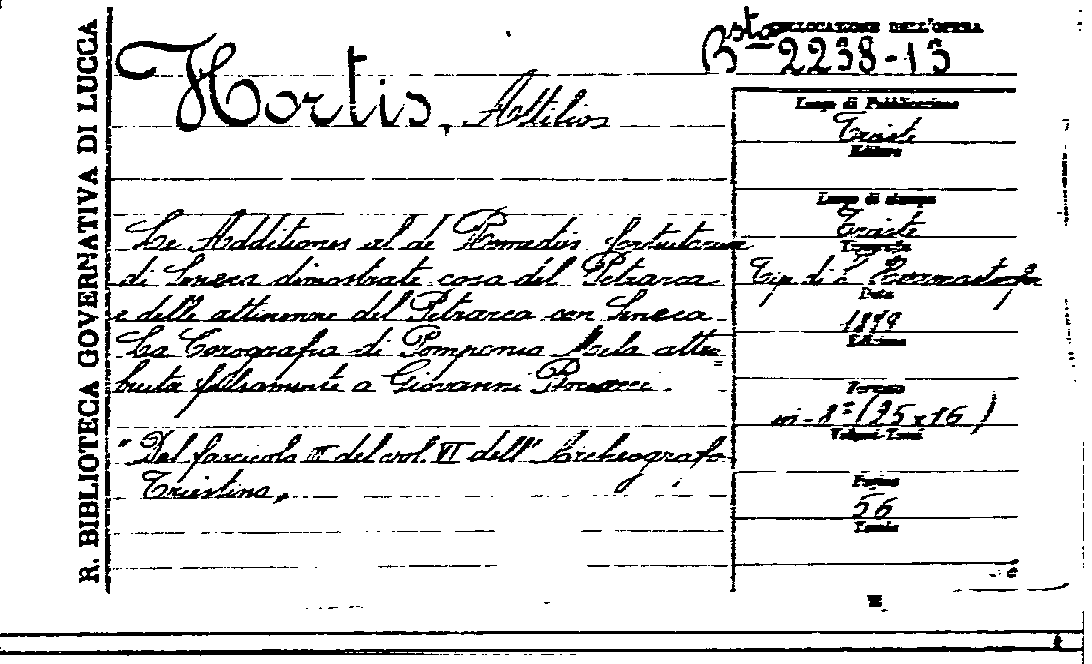 R. BIBLIOTECA GOVERNATIVA DI LUCCA
COLLOCAZIONE DELL'OPERA
Bsta 2238-13
Hortis, Attilios
Le Additiones al de Remediis fortuitorum
di Seneca dimostrate cosa del Petrarca
e delle attinenze del Petrarca con Seneca
La Corografia di Pomponio Mela attri=
buita falsamente a Giovanni Boccacci.
"Dal fascicolo III del vol. VI dell'Archeografo
Triestino"
Luogo di Pubblicazione
Trieste
Editore
Luogo di stampa
Trieste
Tipografia
Tip. di L. Herrmanstorfer
Data
1879
Edizione
Formato
in-8° (25x16)
Volumi-Tomi
Pagine
56
Tavole